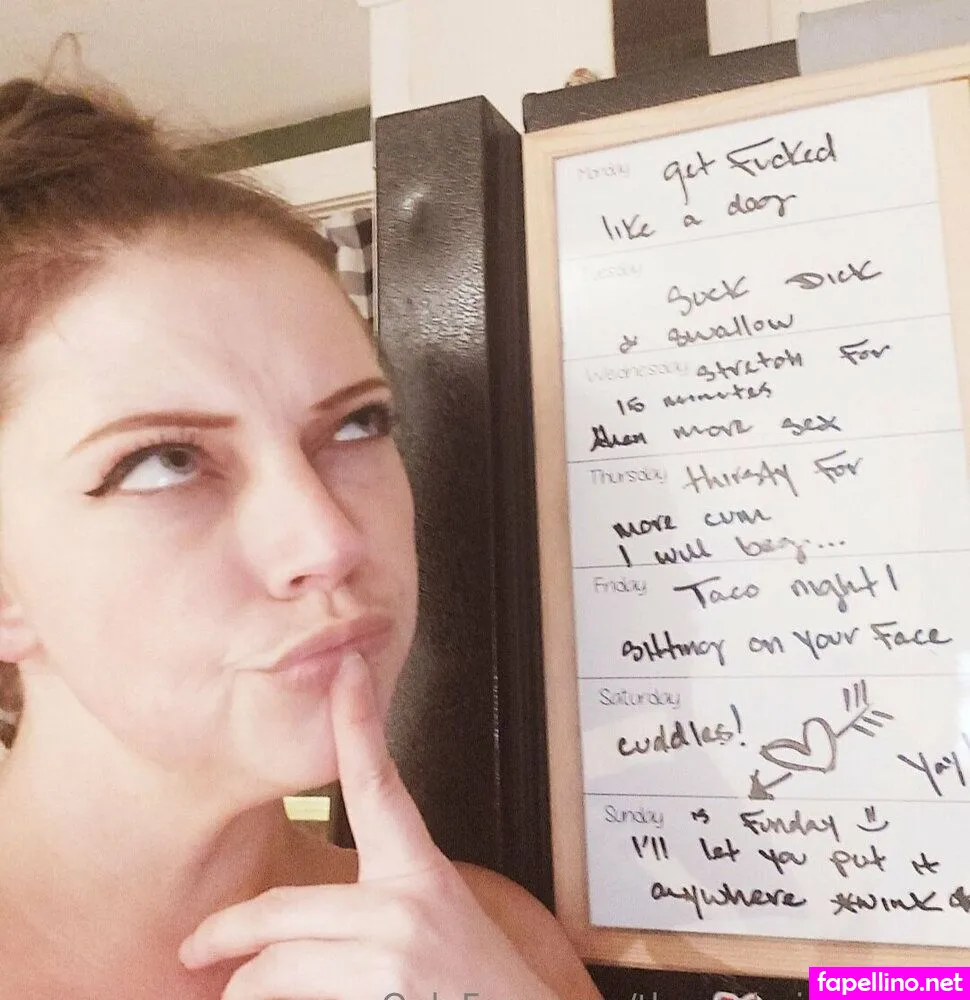 Monday get Fucked
like a dog
Tuesday
Suck Dick
& swallow
Wednesday stretch For
15 minutes
then more sex
Thursday thirsty For
more cum
I will beg....
Friday Taco night!
sitting on your Face
Saturday
cuddles!
Yay!
Sunday is Funday
I'll let you put it
anywhere *wink*
fapellino.net